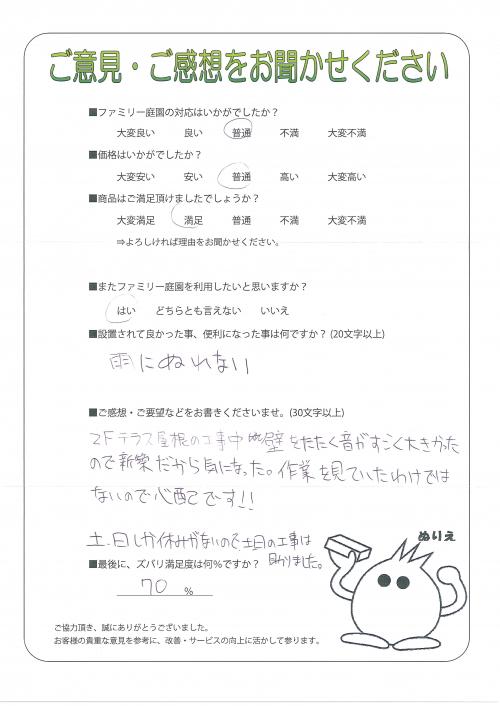 ご意見・ご感想をお聞かせください
■ファミリー庭園の対応はいかがでしたか？
大変良い 良い 普通 不満 大変不満
■価格はいかがでしたか？
大変安い 安い 普通 高い 大変高い
■商品はご満足頂けましたでしょうか？
大変満足 満足 普通 不満 大変不満
⇒よろしければ理由をお聞かせください。
■またファミリー庭園を利用したいと思いますか？
はい どちらとも言えない いいえ
■設置されて良かった事、便利になった事は何ですか？(20文字以上)
雨にぬれない
■ご感想・ご要望などをお書きくださいませ。(30文字以上)
2Fテラス屋根の工事中 壁をたたく音がすごく大きかった
ので新築だから気になった。作業を見ていたわけでは
ないので心配です!!
土、日しか休みがないので土日の工事は
助かりました。
■最後に、ズバリ満足度は何％ですか？
70 %
ぬりえ
ご協力頂き、誠にありがとうございました。
お客様の貴重な意見を参考に、改善・サービスの向上に活かして参ります。